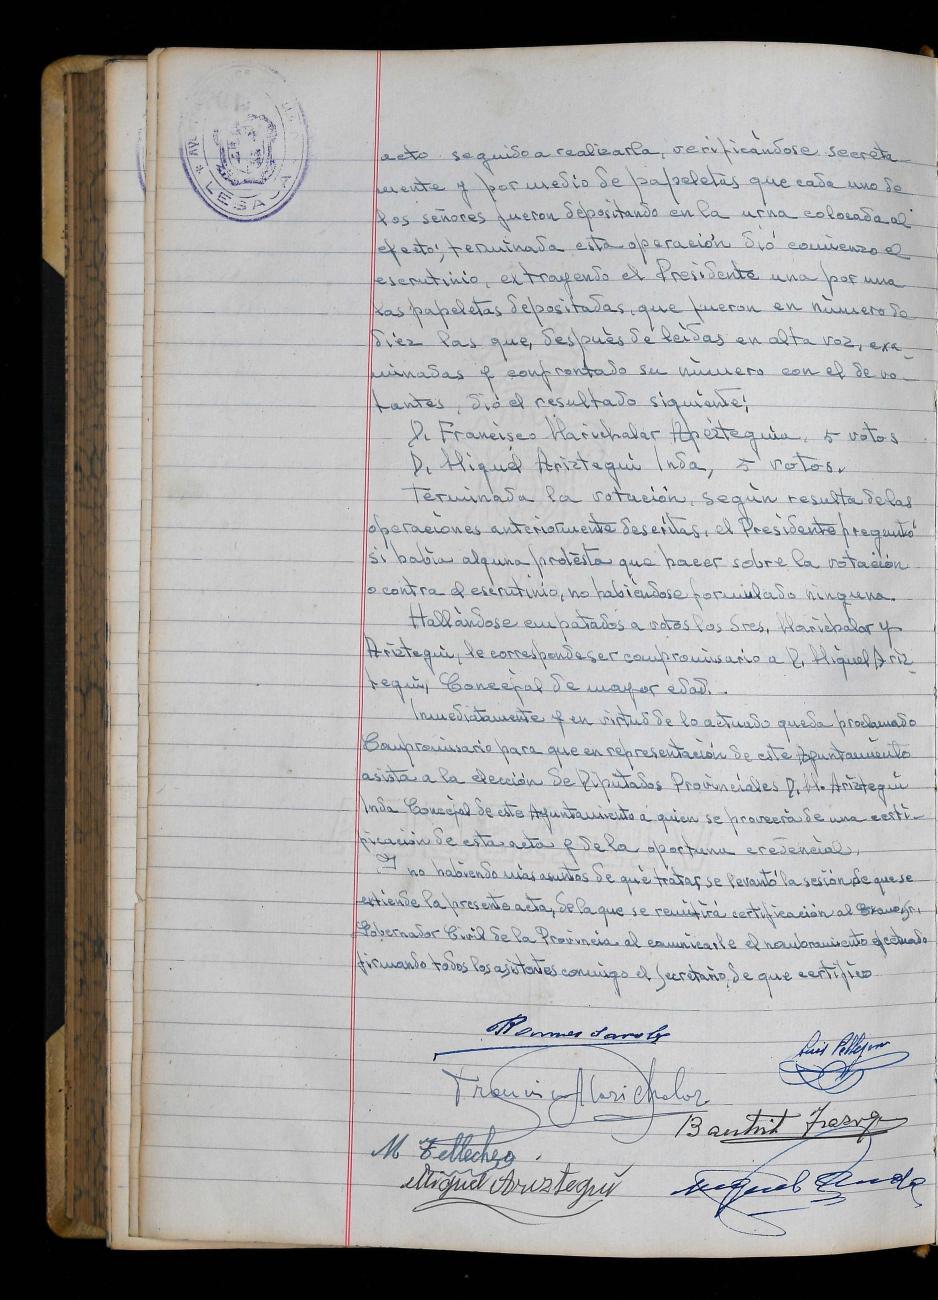 LESACA
acto seguido a realizarla, verificándose secreta-
mente y por medio de papeletas que cada uno de
los señores fueron depositando en la urna colocada al
efecto; terminada esta operación dió comienzo el
escrutinio, extrayendo el Presidente una por una
las papeletas depositadas, que fueron en número de
diez las que, después de leídas en alta voz, exa-
minadas y confrontado su número con el de vo-
tantes, dió el resultado siguiente:
D. Francisco Marichalar Apezteguia, 5 votos
D. Miguel Ariztegui Inda, 5 votos.
Terminada la votación, según resulta de las
operaciones anteriormente descritas, el Presidente preguntó
si había alguna protesta que hacer sobre la votación
o contra el escrutinio, no habiéndose formulado ninguna.
Hallándose empatados a votos los Sres. Marichalar y
Ariztegui, le corresponde ser compromisario a D. Miguel Ariz-
tegui, Concejal de mayor edad.
Inmediatamente y en virtud de lo actuado queda proclamado
Compromisario para que en representación de este Ayuntamiento
asista a la elección de Diputados Provinciales D. M. Ariztegui
Inda Concejal de este Ayuntamiento a quien se proveerá de una certi-
ficación de esta acta y de la oportuna credencial.
Y no habiendo más asuntos de que tratar se levantó la sesión de que se
extiende la presente acta, de la que se remitirá certificación al Excmo. Sr.
Gobernador Civil de la Provincia al comunicarle el nombramiento efectuado
firmando todos los asistentes conmigo el Secretario, de que certifico
Francisco Marichalar
M Tellechea
Miguel Ariztegui
Miguel Inda